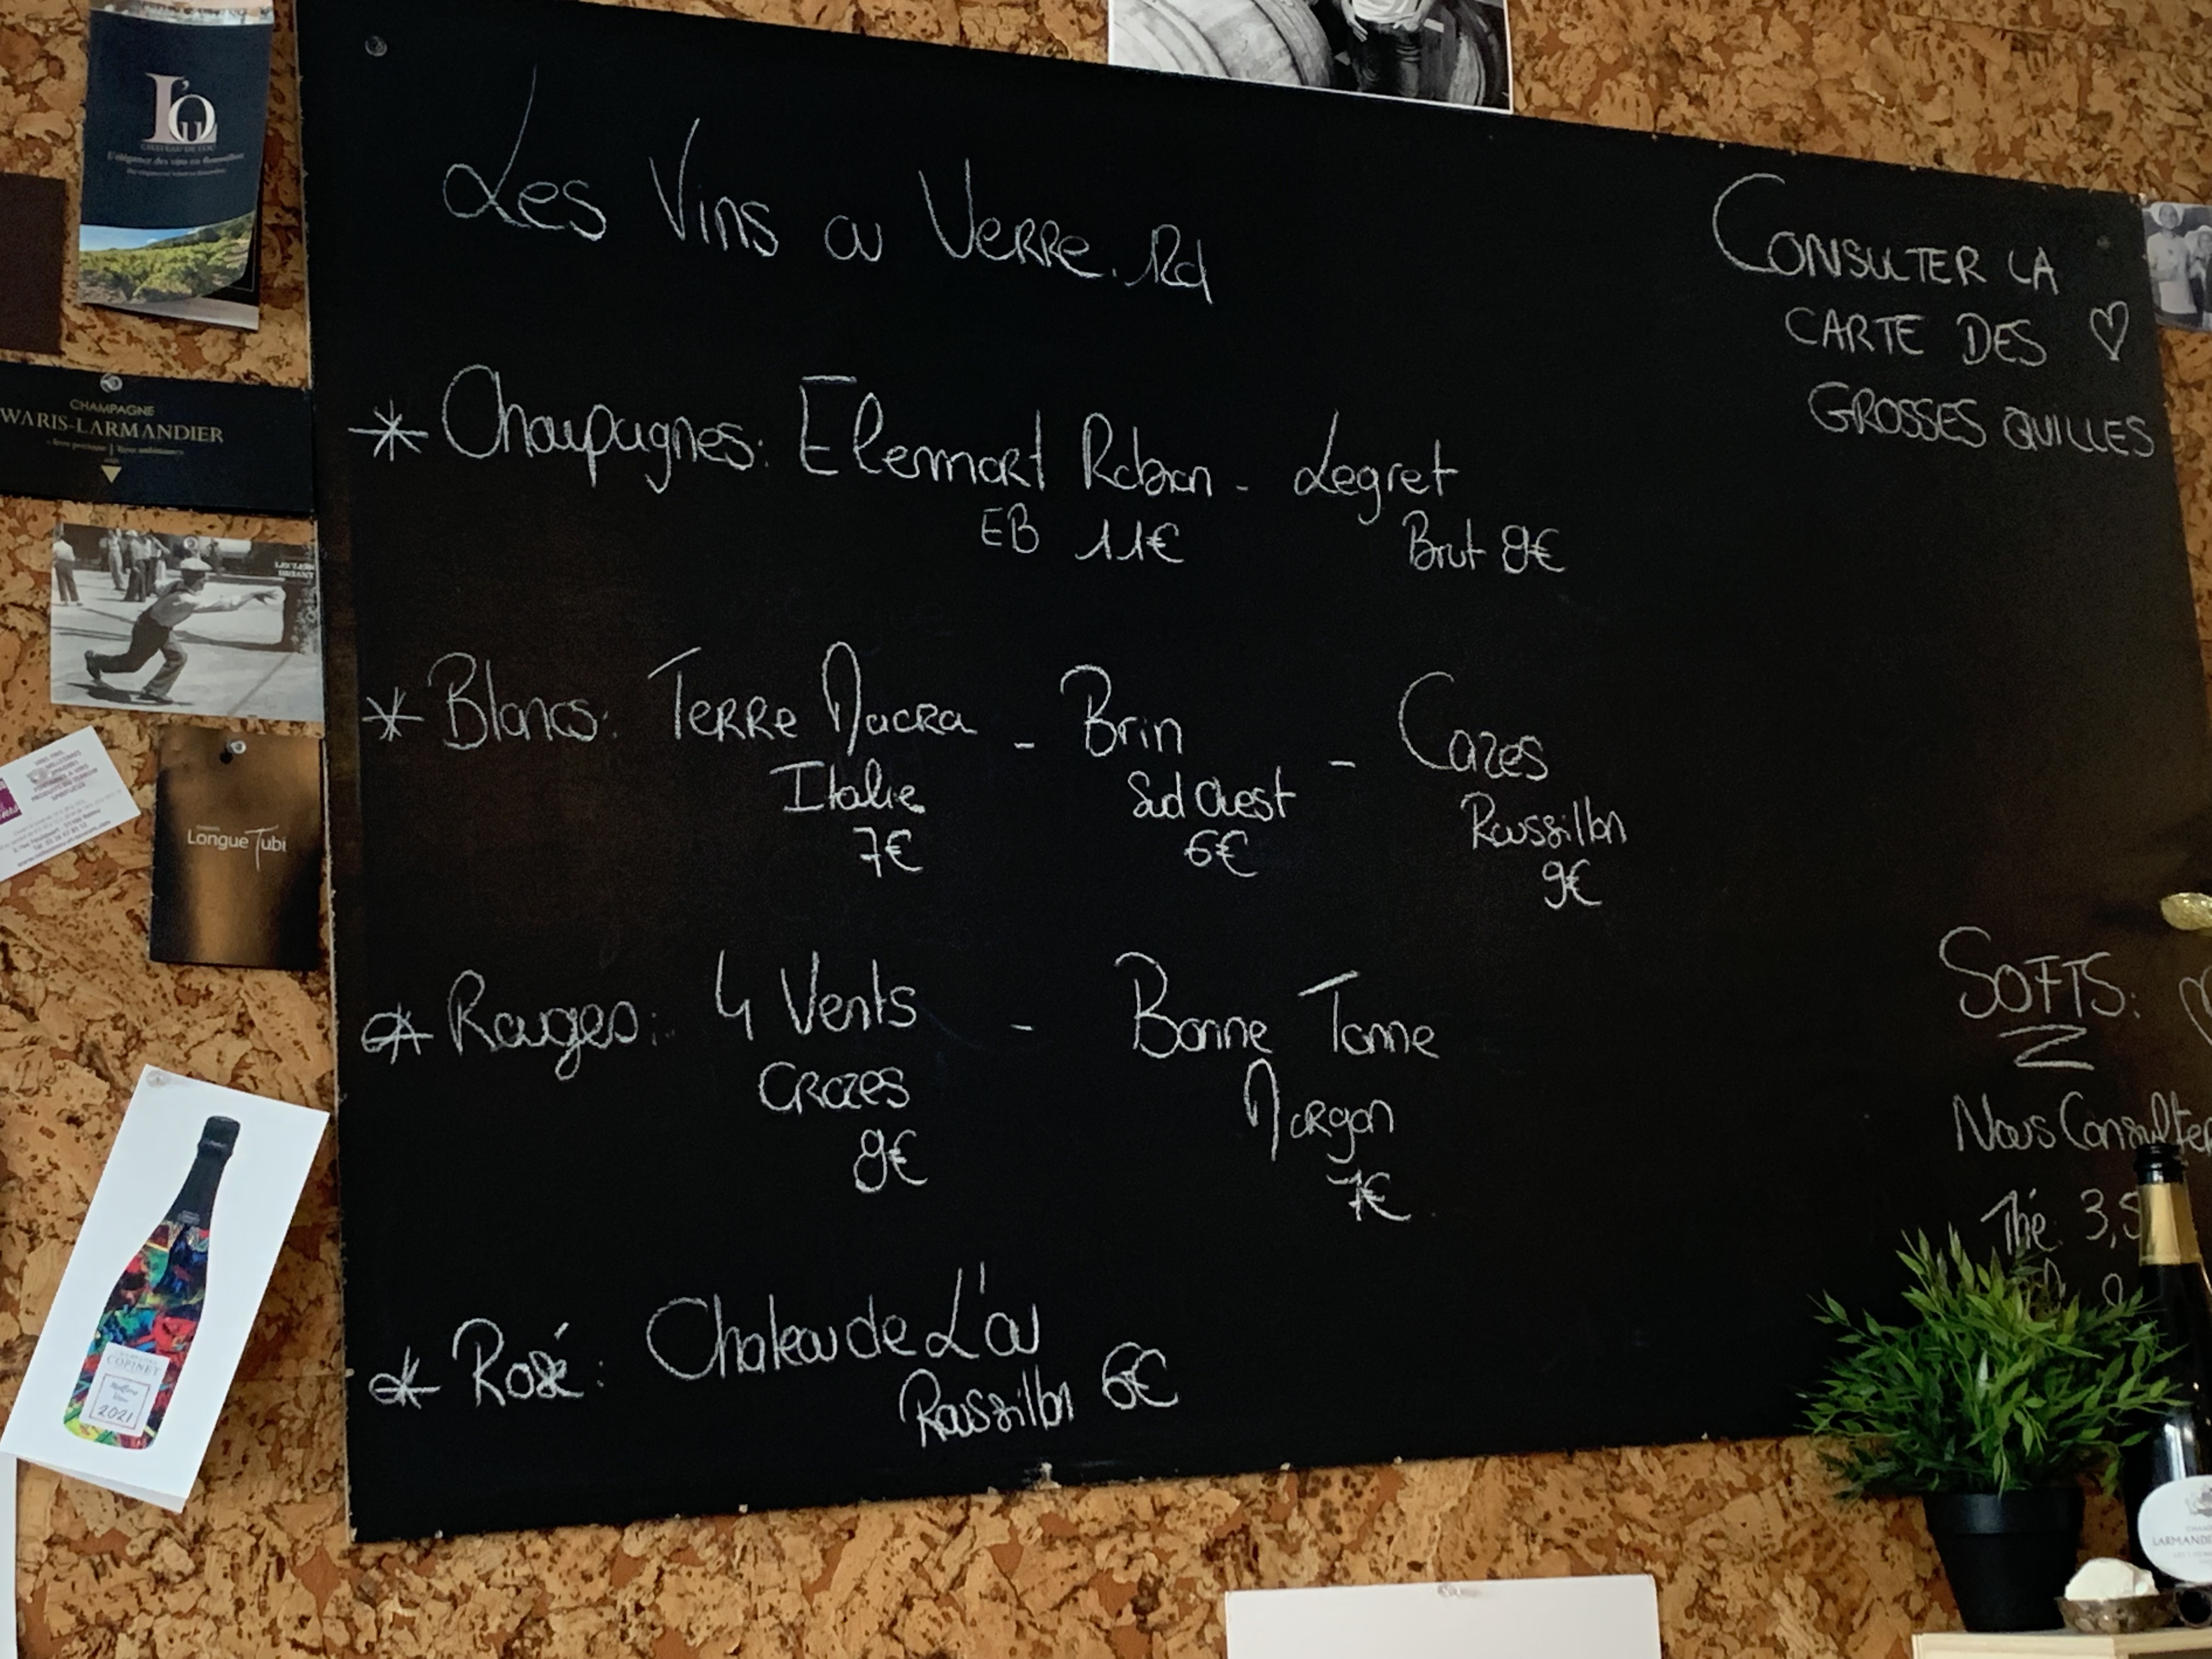 L'OU
CHATEAU DE L'OU
L'élégance des vins en Roussillon
CHAMPAGNE
WARIS-LARMANDIER
LECLERC
BRIANT
Longue Tubi
COPINET
2021
Les Vins au Verre. 12cl
CONSULTER LA
CARTE DES ♡
GROSSES QUILLES
* Champagnes: Elemmart Robion - Legret
EB 11€ Brut 8€
* Blancs: Terre Nacra - Brin - Cazes
Italie Sud Ouest Roussillon
7€ 6€ 9€
* Rouges: 4 Vents - Bonne Tonne
Crozes Morgon
8€ 7€
* Rosé: Chateau de L'ou
Roussillon 6€
SOFTS:
Nous Consulter
Thé: 3,5
LARMANDIE